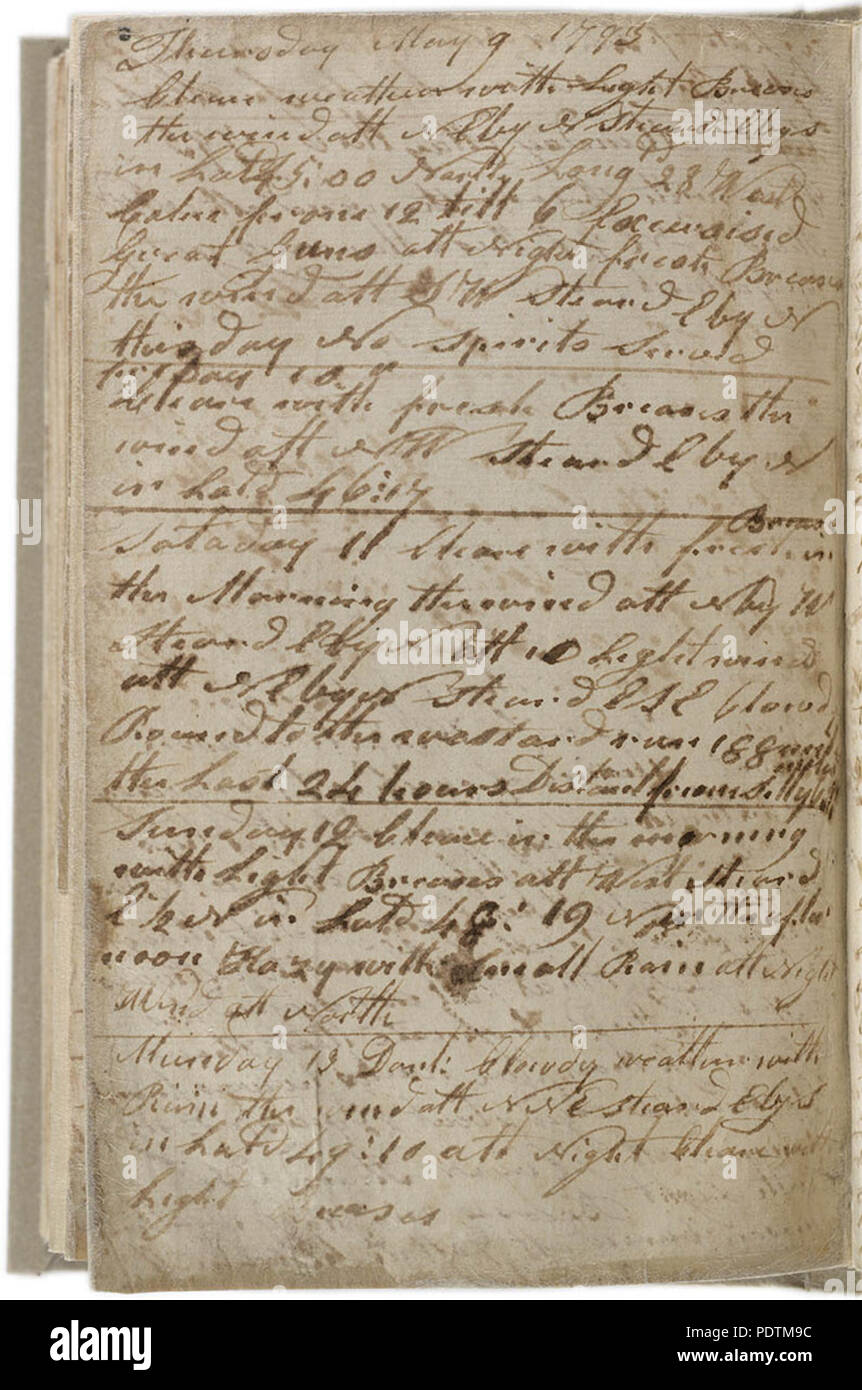 Thursday May 9 1793
Cleare weather with Light Breeas
the wind att NE by N Steard E by S
in Latd 45:00 North Long 28 West
Calm from 12 till 6 Excersised
Great Guns att Night fresh Breeas
the wind att SW Steard E by N
this day No Spirits Served
Friday 10
Cleare with fresh Breeas the
wind att NW Steard E by N
in Latd 46:17
Breeas
Sataday 11 Cleare with fresh in
the Morning the wind att N by W
Steard E by N att 10 Light wind
att NE by N Steard ESE Clowd
Round to the westard run 188
the Last 24 hours Distant from Silly
Sunday 12 Cleare in the morning
with Light Breeas att West Steard
E ½ N in Latd 48:19 N the after
noon Hazy with Small Rain att Night
Wind att North
Munday 13 Do Clowdy weather with
Rain the wind att NNE Steard E by S
in Latd 49:10 att Night Cleare with
Light
alamy
Image ID: PDTM9C
www.alamy.com